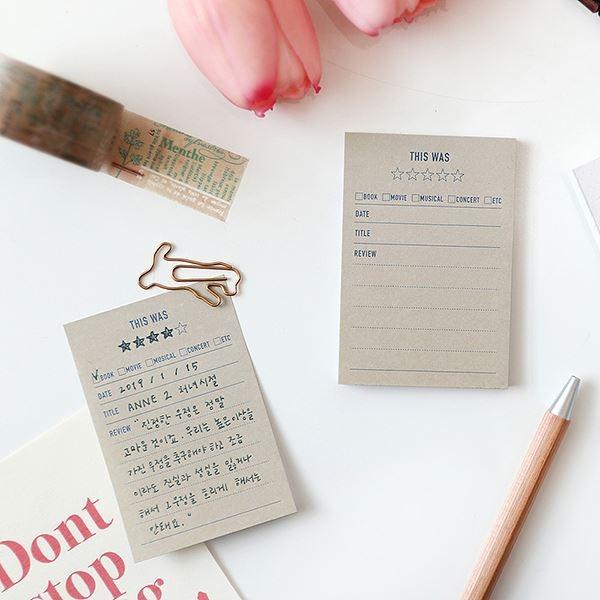 Menthe
THIS WAS
☆☆☆☆☆
□BOOK □MOVIE □MUSICAL □CONCERT □ETC
DATE
TITLE
REVIEW
THIS WAS
★★★★☆
☑BOOK □MOVIE □MUSICAL □CONCERT □ETC
DATE 2019 / 1 / 15
TITLE ANNE 2 처녀시절
REVIEW "진정한 우정은 정말
고마운 것이죠. 우리는 높은이상을
가진 우정을 추구해야 하고 조금
이라도 진실과 성실을 잃거나
해서 그 우정을 흐리게 해서는
안돼요."
Dont
stop